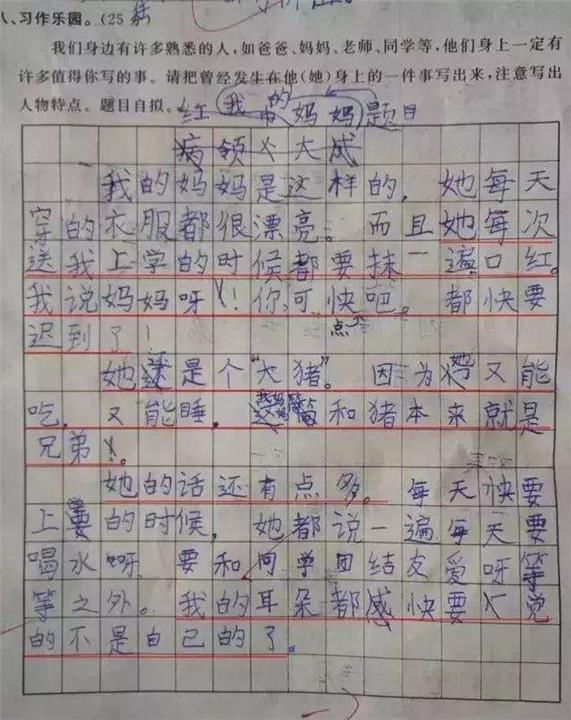 八、习作乐园。(25分
我们身边有许多熟悉的人,如爸爸、妈妈、老师、同学等,他们身上一定有
许多值得你写的事。请把曾经发生在他(她)身上的一件事写出来,注意写出
人物特点。题目自拟。
我的妈妈
题目
我的妈妈是这样的,她每天
穿的衣服都很漂亮。而且她每次
送我上学的时候都要抹一遍口红。
我说妈妈呀!你可快吧。都快要
点
迟到了!
她还是个“大猪”。因为她又能
吃,又能睡,我妈妈简和猪本来就是
兄弟。
她的话还有点多。每天快要
上学的时候,她都说一遍每天要
喝水呀,要和同学团结友爱呀等
等之外。我的耳朵都感快要觉
的不是自己的了。